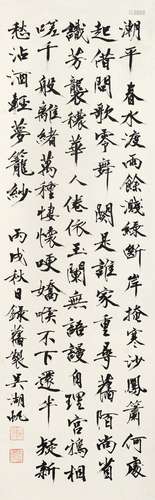 潮平春水渡雨餘濺綠斷岸掩寒沙鳳簫何處
起借問歌零舞闋是誰家重尋舊陌尚省
識芳襲穠華人倦依玉闌無語謾自理宮鴉相
嗟千般離緒萬種悽懷哽嬌喉不下還半擬新
愁沾酒輕夢籠紗
丙戌秋日錄舊製吳湖帆